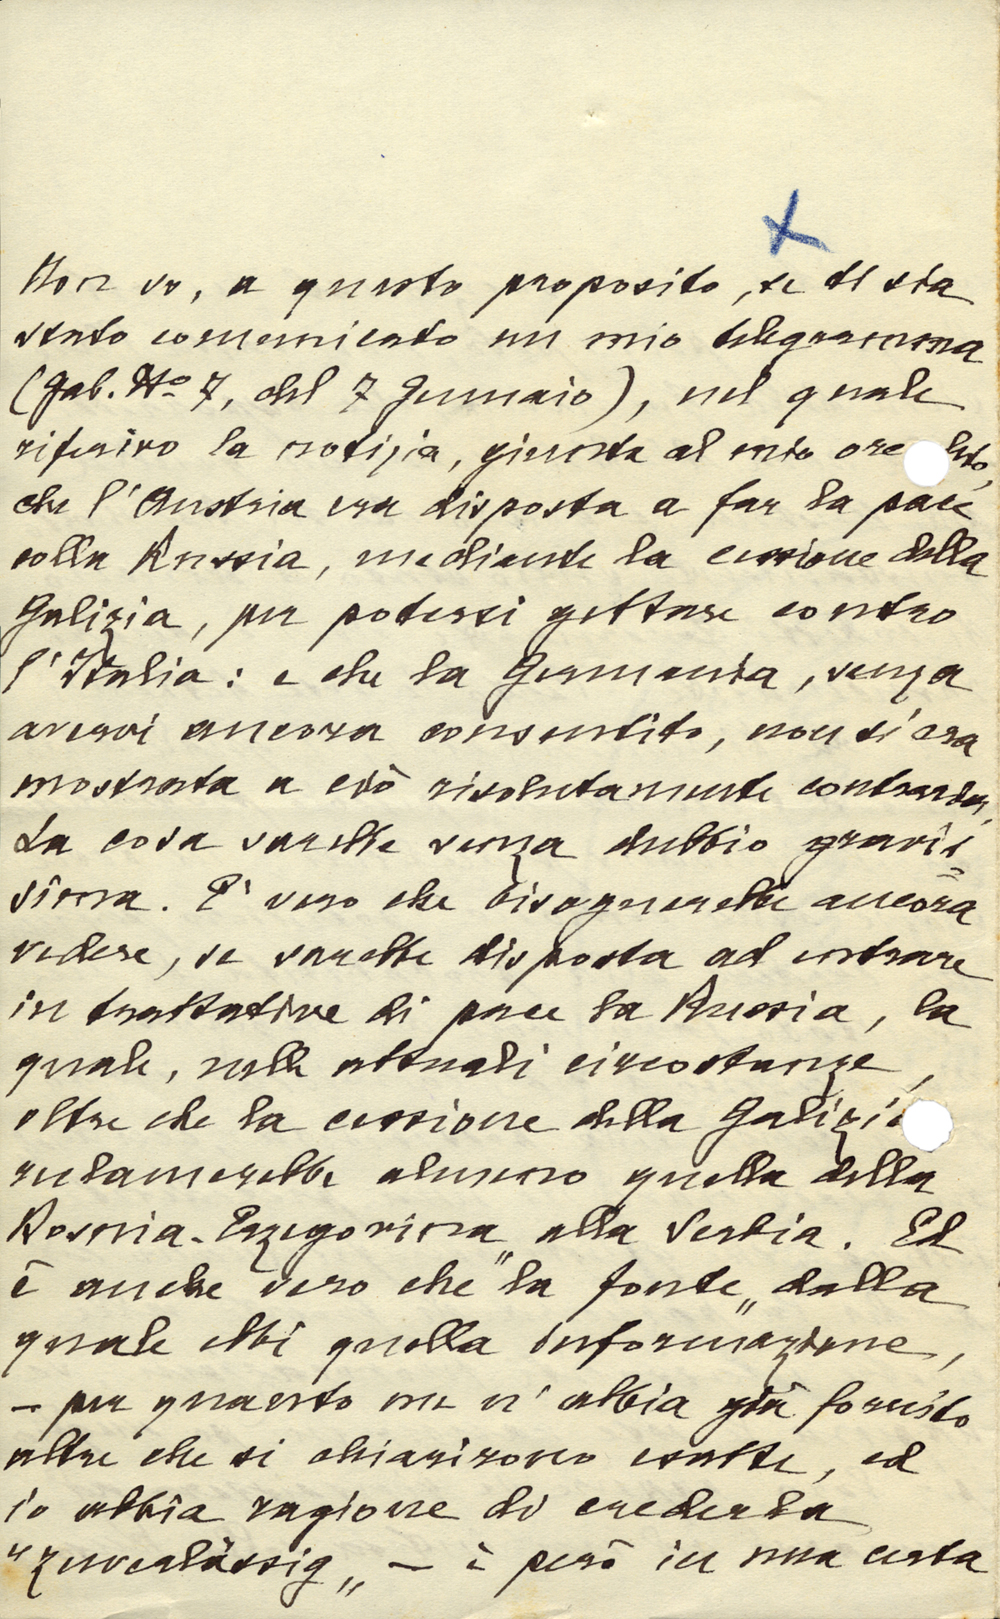 Non so, a questo proposito, se ti sia
stato comunicato un mio telegramma
(Gab. No 7, del 7 Gennaio), nel quale
riferivo la notizia, giunta al mio
che l'Austria era disposta a far la pace
colla Russia, mediante la cessione della
Galizia, per potersi gettare contro
l'Italia: e che la Germania, senza
avervi ancora consentito, non si era
mostrata a ciò risolutamente contraria.
La cosa sarebbe senza dubbio gravis=
sima. E' vero che bisognerebbe ancora
vedere, se sarebbe disposta ad entrare
in trattative di pace la Russia, la
quale, nelle attuali circostanze,
oltre che la cessione della Galizia
reclamerebbe almeno quella della
Bosnia-Erzegovina alla Serbia. Ed
è anche vero che "la fonte„ dalla
quale ebbi quella informazione,
– per quanto me n'abbia già fornito
altre che si chiarirono esatte, ed
io abbia ragione di crederla
"zuverlässig„ – è però in una certa